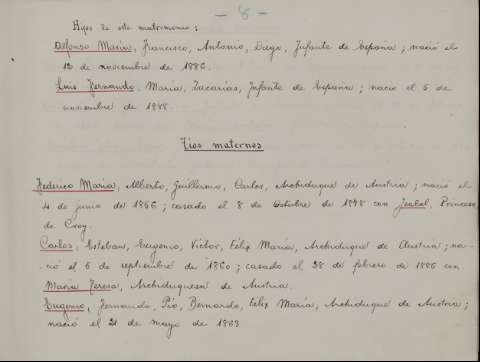 - 8 -
Hijos de este matrimonio:
Alfonso María, Francisco, Antonio, Diego, Infante de España; nació el
12 de noviembre de 1886.
Luis Fernando, María, Zacarías, Infante de España; nació el 5 de
noviembre de 1888.
Tíos maternos
Federico María, Alberto, Guillermo, Carlos, Archiduque de Austria; nació el
4 de junio de 1856; casado el 8 de Octubre de 1878 con Isabel, Princesa
de Croy.
Carlos, Esteban, Eugenio, Victor, Félix María, Archiduque de Austria; na-
ció el 5 de septiembre de 1860; casado el 28 de febrero de 1886 con
María Teresa, Archiduquesa de Austria.
Eugenio, Fernando, Pío, Bernardo, Félix María, Archiduque de Austria;
nació el 21 de mayo de 1863